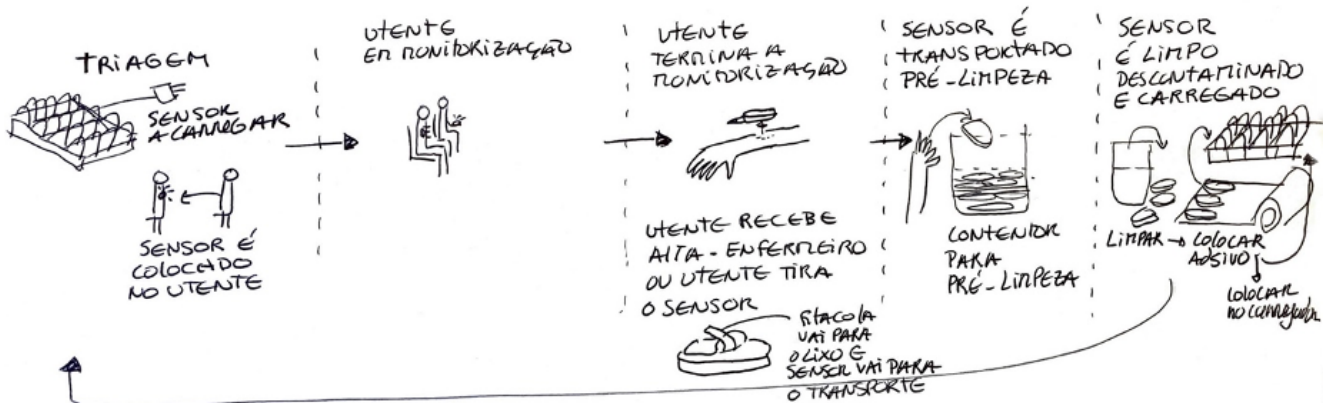 TRIAGEM
SENSOR
A CARREGAR
SENSOR É
COLOCADO
NO UTENTE
UTENTE
EM MONITORIZAÇÃO
UTENTE
TERMINA A
MONITORIZAÇÃO
UTENTE RECEBE
ALTA - ENFERMEIRO
OU UTENTE TIRA
O SENSOR
FITACOLA
VAI PARA
O LIXO E
SENSOR VAI PARA
O TRANSPORTE
SENSOR É
TRANSPORTADO
PRÉ-LIMPEZA
CONTENTOR
PARA
PRÉ-LIMPEZA
SENSOR
É LIMPO
DESCONTAMINADO
E CARREGADO
LIMPAR → COLOCAR
ADSIVO
COLOCAR
NO CARREGADOR